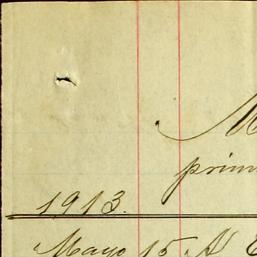 M
prim
1913.
Mayo 15. A